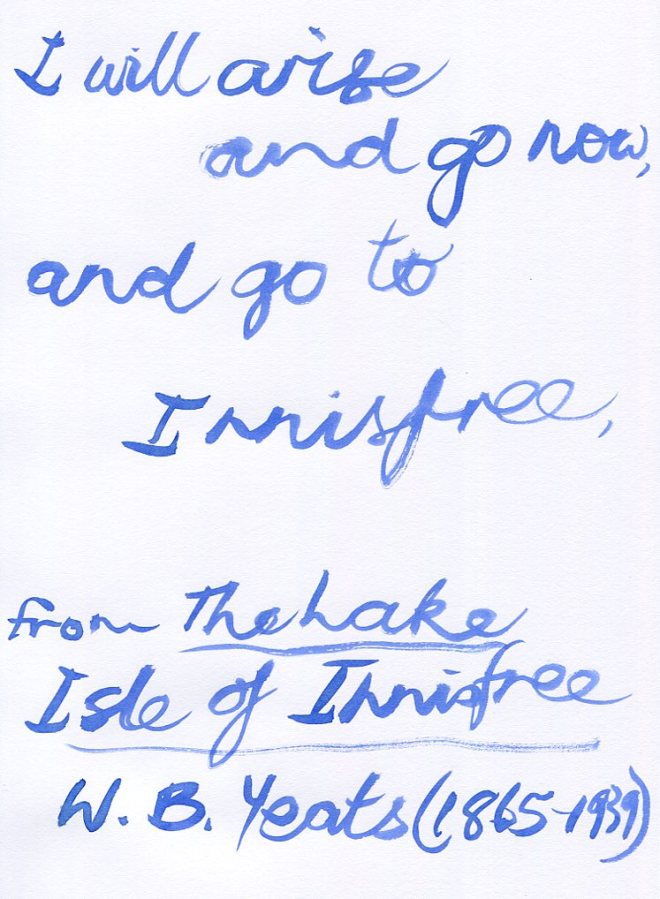 I will arise
and go now,
and go to
Innisfree,
from The Lake
Isle of Innisfree
W. B. Yeats (1865-1939)